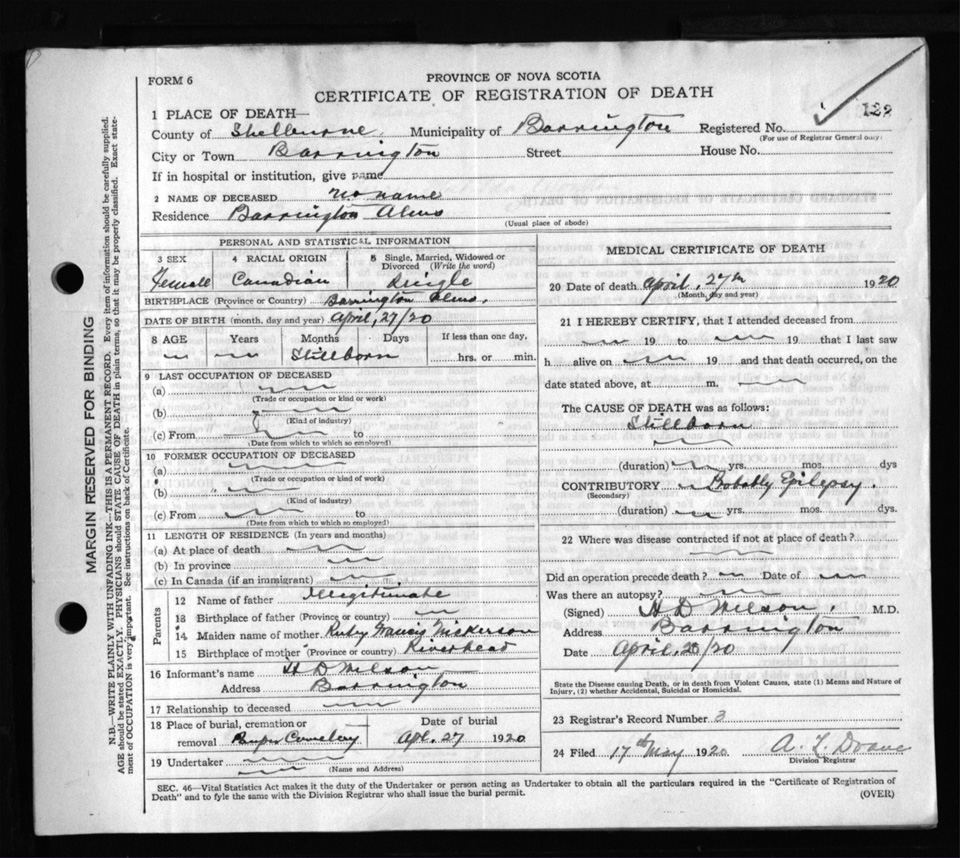 FORM 6
PROVINCE OF NOVA SCOTIA
CERTIFICATE OF REGISTRATION OF DEATH
1 PLACE OF DEATH—
County of Shelburne Municipality of Barrington Registered No. 122
(For use of Registrar General only)
City or Town Barrington Street House No.
If in hospital or institution, give name
2 NAME OF DECEASED no name
Residence Barrington Alms
(Usual place of abode)
PERSONAL AND STATISTICAL INFORMATION
3 SEX 4 RACIAL ORIGIN 5 Single, Married, Widowed or Divorced (Write the word)
Female Canadian Single
BIRTHPLACE (Province or Country) Barrington Alms.
DATE OF BIRTH (month, day and year) April, 27/20
8 AGE Years Months Days If less than one day,
Stillborn hrs. or min.
9 LAST OCCUPATION OF DECEASED
(a)
(Trade or occupation or kind or work)
(b)
(Kind of industry)
(c) From to
(Date from which to which so employed)
10 FORMER OCCUPATION OF DECEASED
(a)
(Trade or occupation or kind of work)
(b)
(Kind of industry)
(c) From to
(Date from which to which so employed)
11 LENGTH OF RESIDENCE (In years and months)
(a) At place of death
(b) In province
(c) In Canada (if an immigrant)
Parents
12 Name of father Illigitimate
13 Birthplace of father (Province or country)
14 Maiden name of mother Ruby Francis Nickerson
15 Birthplace of mother (Province or country) Riverhead
16 Informant's name H D Wilson
Address Barrington
17 Relationship to deceased
18 Place of burial, cremation or removal Cemetery
Date of burial Apl. 27 1920
19 Undertaker
(Name and Address)
MEDICAL CERTIFICATE OF DEATH
20 Date of death April, 27th 1920
(Month, day and year)
21 I HEREBY CERTIFY, that I attended deceased from
19 to 19 that I last saw
h alive on 19 and that death occurred, on the
date stated above, at m.
The CAUSE OF DEATH was as follows:
Stillborn
(duration) yrs. mos. dys
CONTRIBUTORY Probably Epilepsy.
(Secondary)
(duration) yrs. mos. dys.
22 Where was disease contracted if not at place of death?
Did an operation precede death? Date of
Was there an autopsy?
(Signed) H D Wilson, M.D.
Address Barrington
Date April, 28/20
State the Disease causing Death, or in death from Violent Causes, state (1) Means and Nature of Injury, (2) whether Accidental, Suicidal or Homicidal.
23 Registrar's Record Number 3
24 Filed 17th May 1920 A. L. Doane
Division Registrar
SEC. 46—Vital Statistics Act makes it the duty of the Undertaker or person acting as Undertaker to obtain all the particulars required in the "Certificate of Registration of
Death" and to fyle the same with the Division Registrar who shall issue the burial permit.
(OVER)
MARGIN RESERVED FOR BINDING
N.B.—WRITE PLAINLY WITH UNFADING INK—THIS IS A PERMANENT RECORD. Every item of information should be carefully supplied.
AGE should be stated EXACTLY. PHYSICIANS should STATE CAUSE OF DEATH in plain terms, so that it may be properly classified. Exact state-
ment of OCCUPATION is very important. See instructions on back of Certificate.